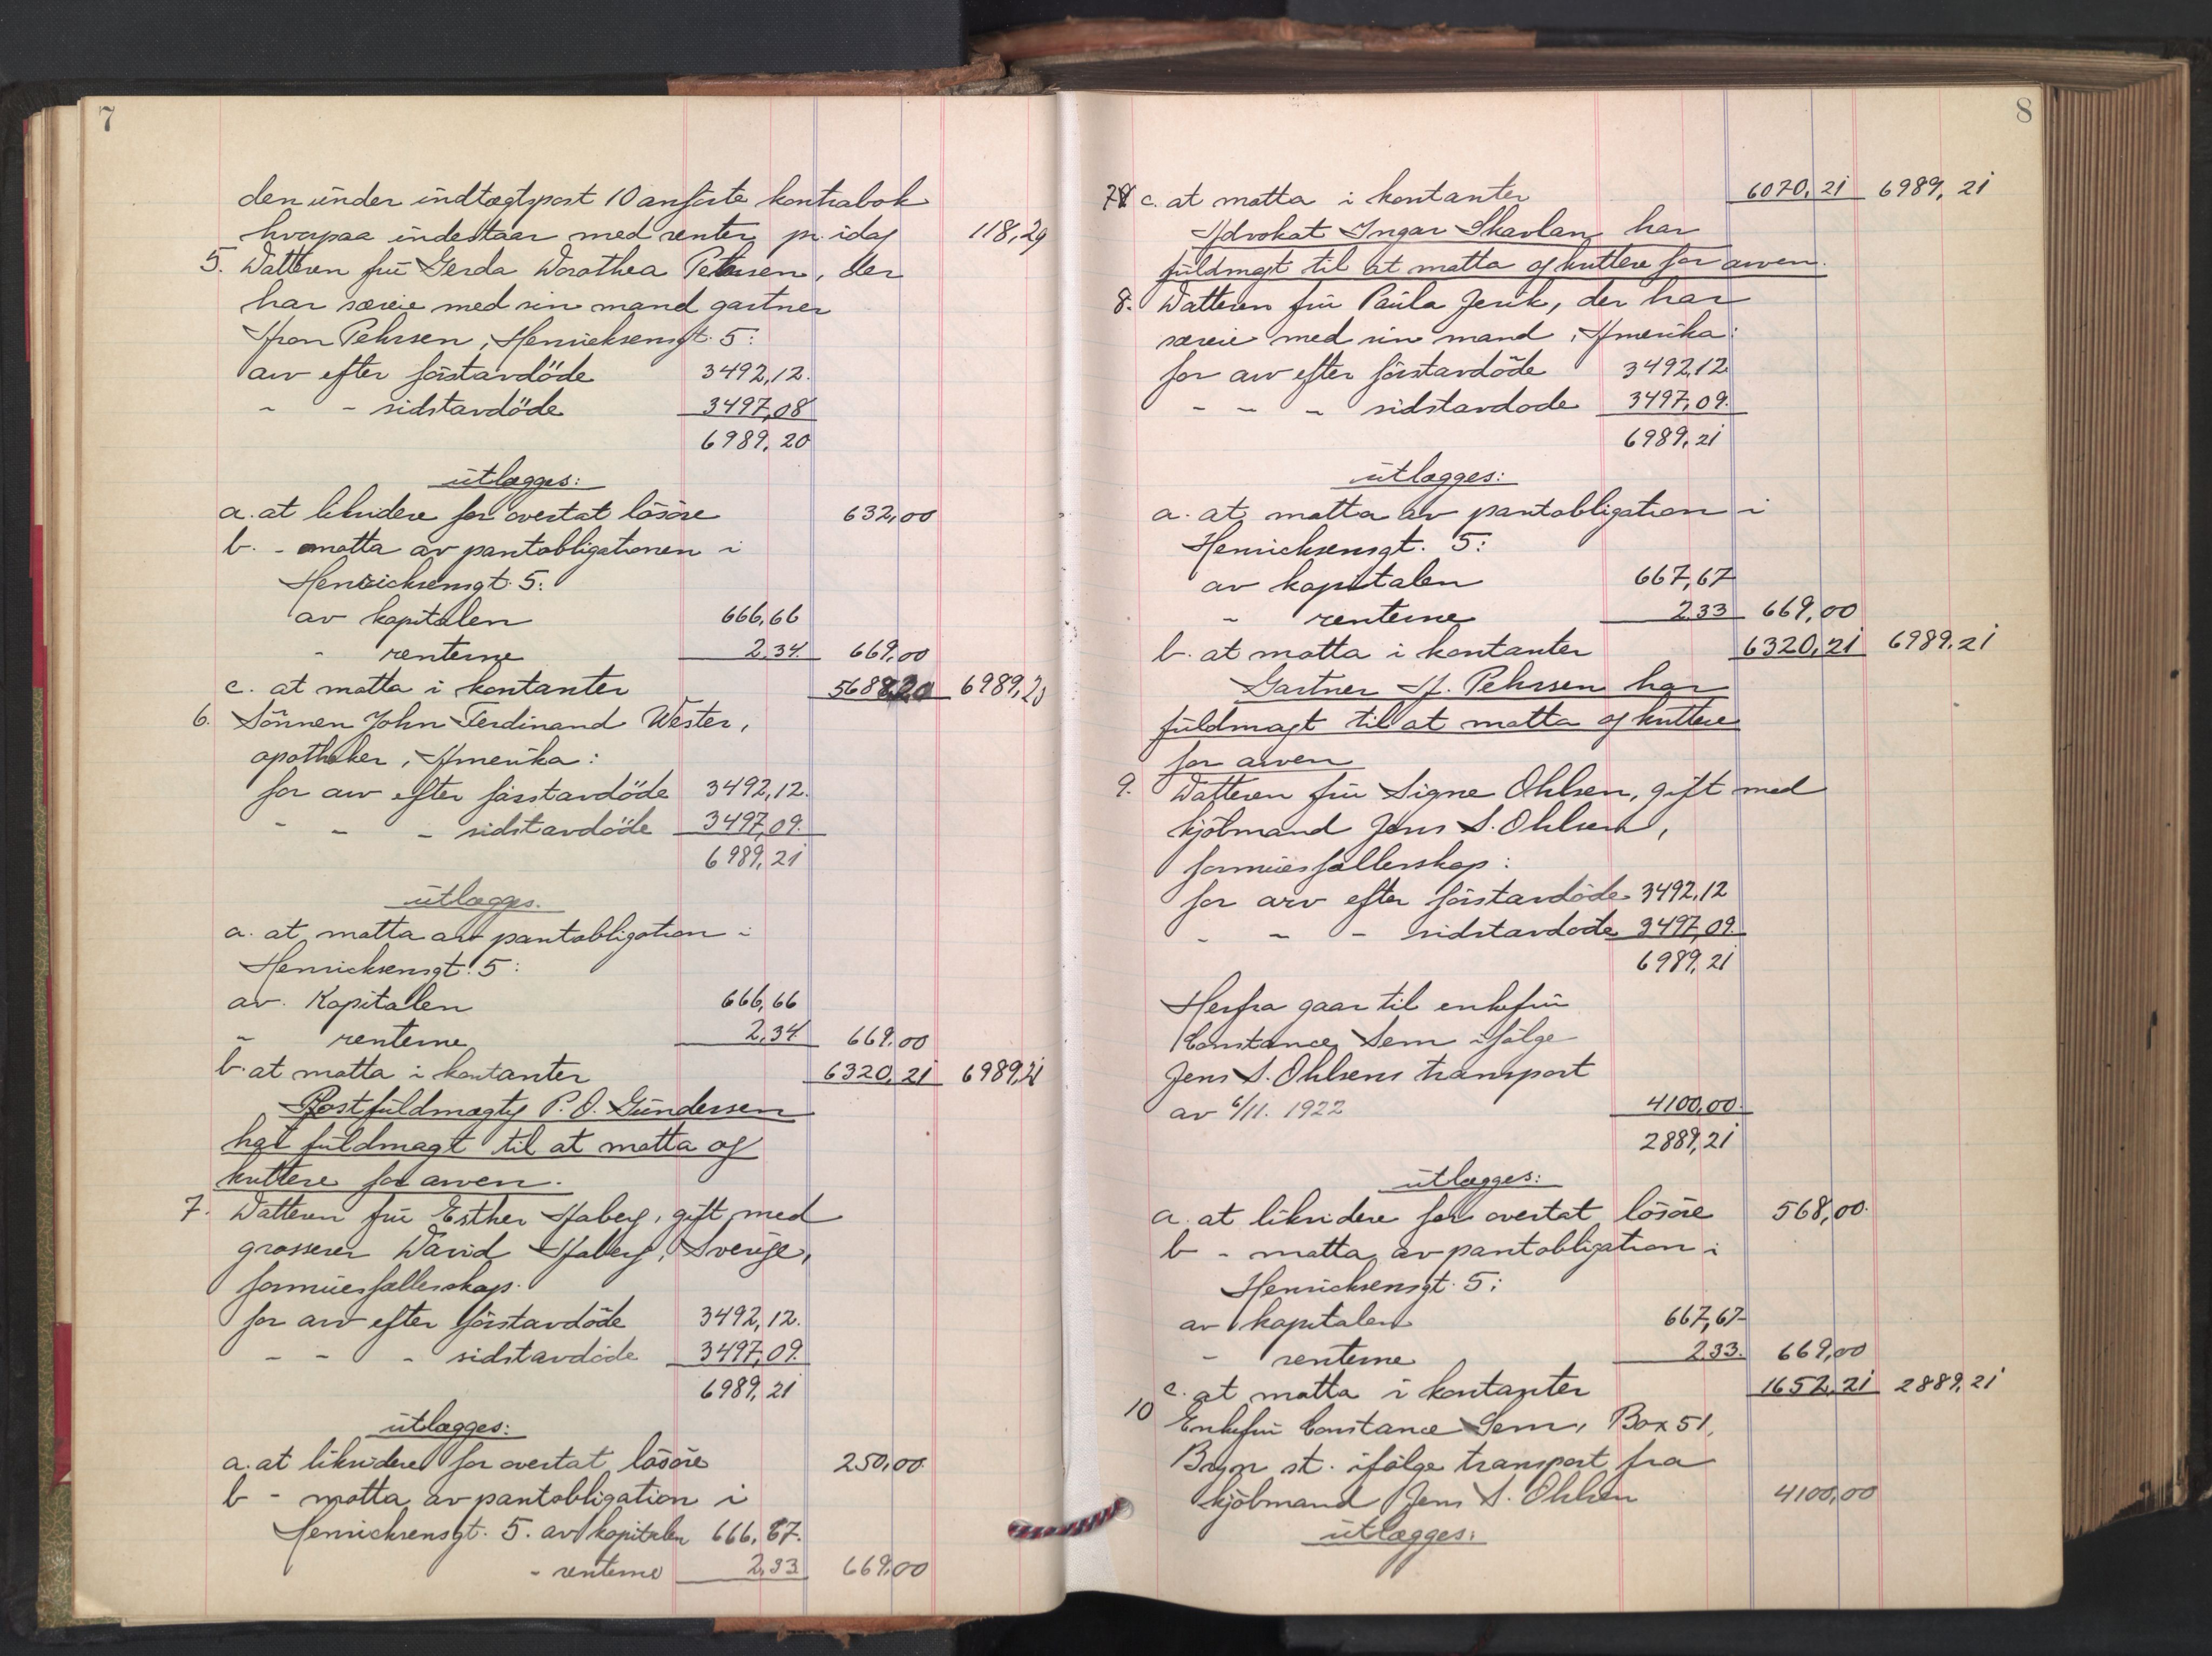 7
den under indtægtspost 10 anførte kontrabok
hvorpaa indestaar med renter pr. idag 118,29
5. Datteren frü Gerda Dorothea Pehrsen, der
har særeie med sin mand gartner
Aron Pehrsen, Henrichsensgt. 5:
arv efter förstavdöde 3492,12.
" - sidstavdöde 3497,08
6989,20
ütlægges:
a. at likvidere for overtat lösöre 632,00
b. - motta av pantobligationen i
Henrichsensgt. 5:
av kapitalen 666,66
- renterne 2,34. 669,00
c. at motta i kontanter 5688,20 6989,20
6. Sönnen John Ferdinand Wester,
apotheker, Amerika:
for arv efter förstavdöde 3492,12.
- - - sidstavdöde 3497,09.
6989,21
ütlægges.
a. at motta av pantobligation i
Henricksensgt. 5:
av. Kapitalen 666,66
- renterne 2,34 669,00
b. at motta i kontanter 6320,21 6989,21
Postfüldmægtig P. O. Gündersen
har füldmagt til at motta og
kvittere for arven.
7. Datteren frü Esther Åberg, gift med
grosserer David Åberg, Sverige,
formüesfællesskap.
for arv efter förstavdöde 3492,12.
- - - sidstavdöde 3497,09.
6989,21
ütlægges:
a. at likvidere for overtat lösöre 250,00
b - motta av pantobligation i
Henricksensgt. 5. av kapitalen 666,67.
- renterne 2,33 669,00
8
7 c. at motta i kontanter 6070,21 6989,21
Advokat Ingar Skavlan har
füldmagt til at motta og kvittere for arven.
8. Datteren frü Paüla Jerik, der har
særeie med sin mand, Amerika:
for arv efter förstavdöde 3492,12
- - - sidstavdöde 3497,09.
6989,21
ütlægges:
a. at motta av pantobligation i
Henricksensgt. 5:
av kapitalen 667,67
- renterne 2,33 669,00
b. at motta i kontanter 6320,21 6989,21
Gartner A. Pehrsen har
füldmagt til at motta og kvittere
for arven
9. Datteren frü Signe Ohlsen, gift med
kjöbmand Jens S. Ohlsen,
formüesfællesskap:
for arv efter förstavdöde 3492,12
- - - sidstavdöde 3497,09.
6989,21
Herfra gaar til enkefrü
Constance Sem ifölge
Jens S. Ohlsens transport
av 6/11. 1922 4100,00.
2889,21
ütlægges:
a. at likvidere for overtat lösöre 568,00.
b - motta av pantobligation i
Henricksensgt. 5:
av kapitalen 667,67
- renterne 2,33. 669,00
c. at motta i kontanter 1652,21 2889,21
10 Enkefrü Constance Sem, Box 51,
Bryn st. ifölge transport fra
kjöbmand Jens S. Ohlsen 4100,00
ütlægges: